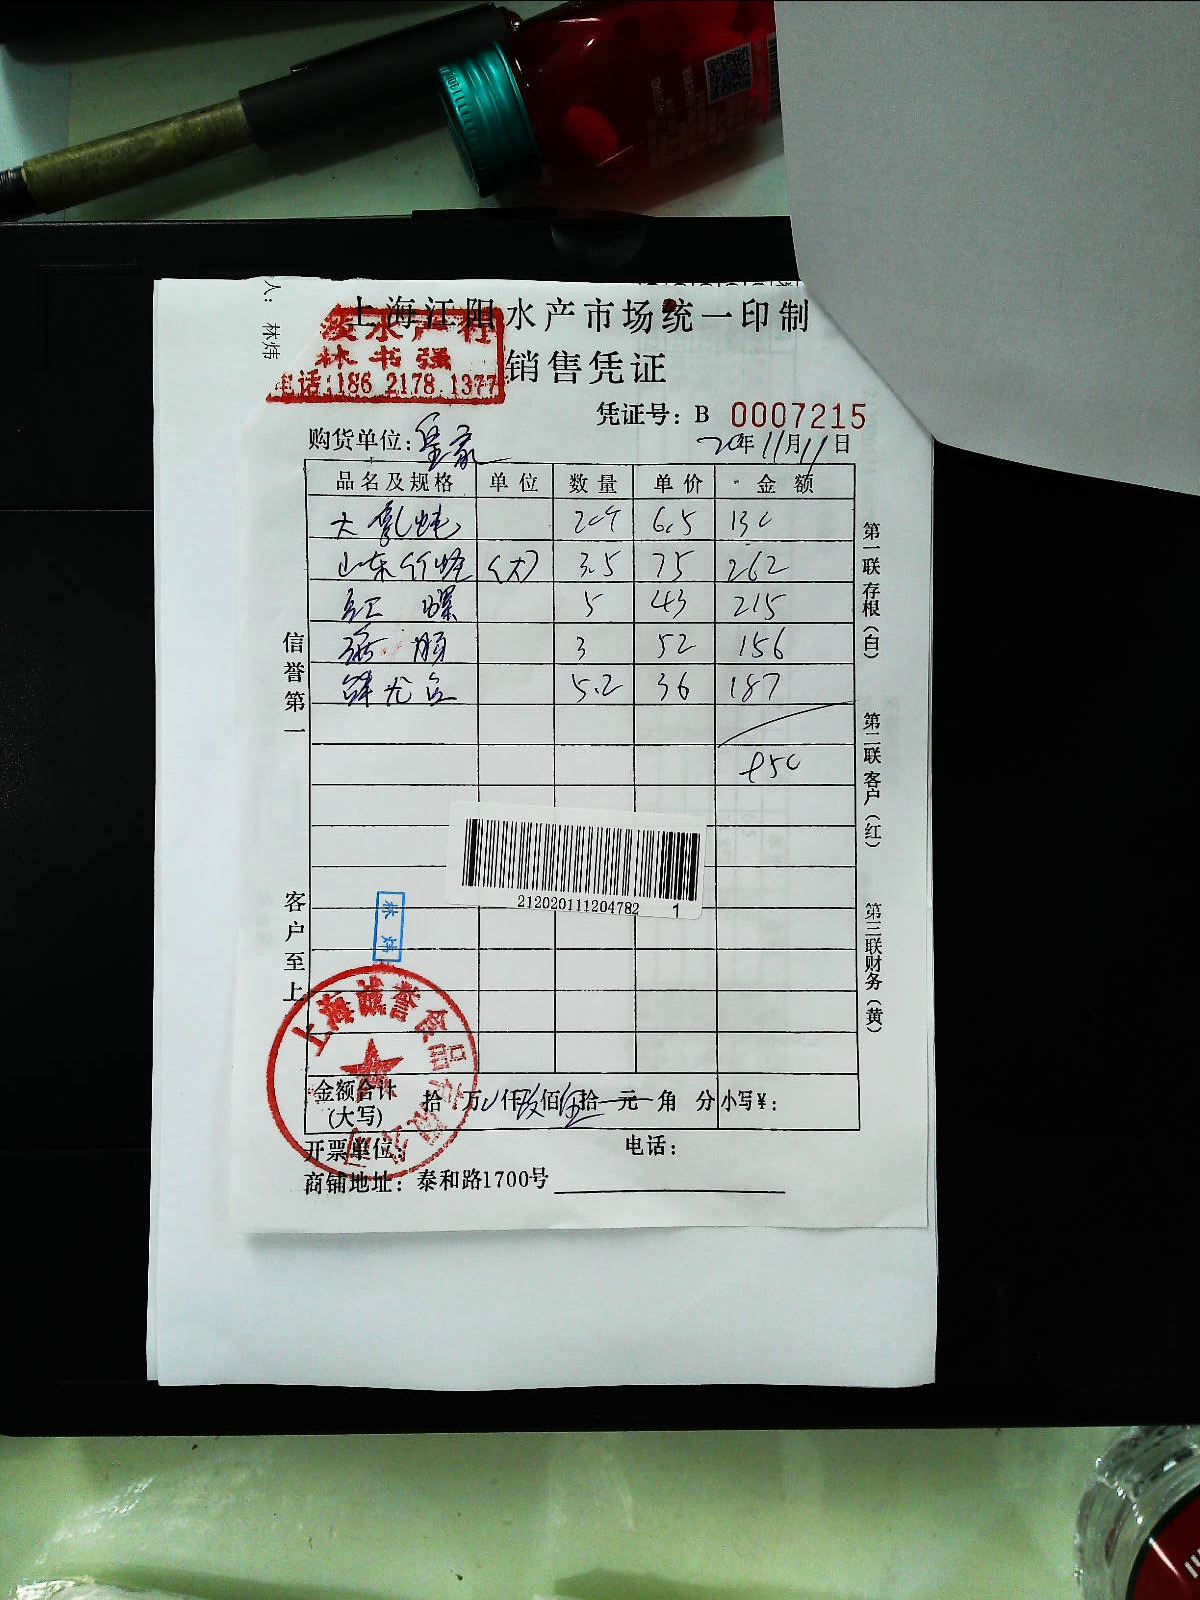 人: 林炜
上海江阳水产市场统一印制
凌水产行
林书强
电话:186 2178 1377
销售凭证
凭证号: B 0007215
购货单位: 皇家
20年11月11日
品名及规格 单位 数量 单价 金额
大 6.5 130
山东竹蛏 (大) 3.5 75 262
红螺 5 43 215
3 52 156
5.2 36 187
950
212020111204782 1
林炜
上海诚誉食品有限公司
金额合计(大写) 拾 万 仟 玖佰伍拾 元 角 分 小写¥:
开票单位: 电话:
商铺地址: 泰和路1700号
信誉第一
客户至上
第一联存根(白)
第二联客户(红)
第三联财务(黄)